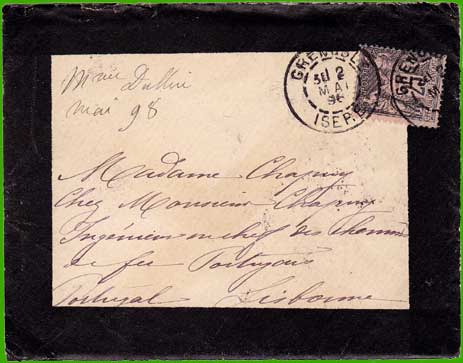 Mme
mai 98
GRENOBLE
2
MAI
ISERE
GRENOBLE
Madame Chapuy
Chez Monsieur Chapuy
Ingénieur en chef des Chemins
de fer Portugais
Portugal Lisbonne